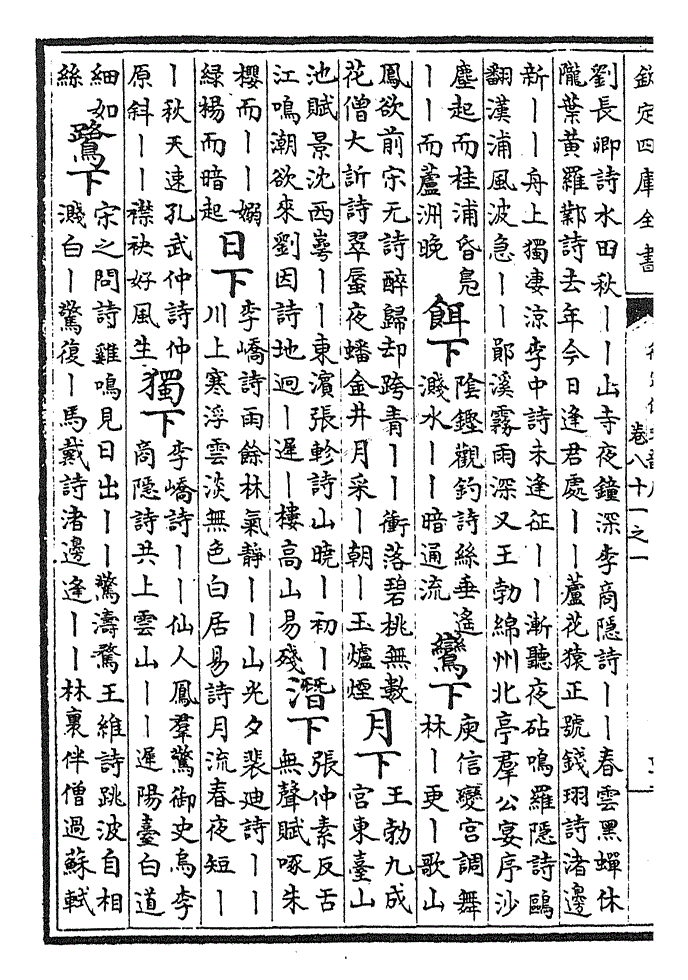 欽定四庫全書
卷八十一之一
劉長卿詩水田秋丨丨山寺夜鐘深李商隱詩丨丨春雲黑蟬休
隴葉黄羅鄴詩去年今日逢君處丨丨蘆花猿正號錢珝詩渚邊
新丨丨舟上獨凄涼李中詩未逢征丨丨漸聽夜砧鳴羅隱詩鷗
翻漢浦風波急丨丨鄖溪霧雨深又王勃綿州北亭羣公宴序沙
塵起而桂浦昏鳬
丨丨而蘆洲晚
餌下
陰鏗觀釣詩絲垂遙
濺水丨丨暗通流
鸞下
庾信變宮調舞
林丨更丨歌山
鳳欲前宋无詩醉歸却跨青丨丨衝落碧桃無數
花僧大訢詩翠蜃夜蟠金井月采丨朝丨玉爐煙
月下
王勃九成
宮東臺山
池賦景沈西㟧丨丨東濱張軫詩山曉丨初丨
江鳴潮欲來劉因詩地迥丨遲丨樓高山易殘
潛下
張仲素反舌
無聲賦啄朱
櫻而丨丨嫋
緑楊而暗起
日下
李嶠詩雨餘林氣靜丨丨山光夕裴迪詩丨丨
川上寒浮雲淡無色白居易詩月流春夜短丨
丨秋天速孔武仲詩仲
原斜丨丨襟袂好風生
獨下
李嶠詩丨丨仙人鳳羣驚御史烏李
商隱詩共上雲山丨丨遲陽臺白道
細如
絲
鷺下
宋之問詩雞鳴見日出丨丨驚濤鶩王維詩跳波自相
濺白丨驚復丨馬戴詩渚邊逢丨丨林裏伴僧過蘇軾